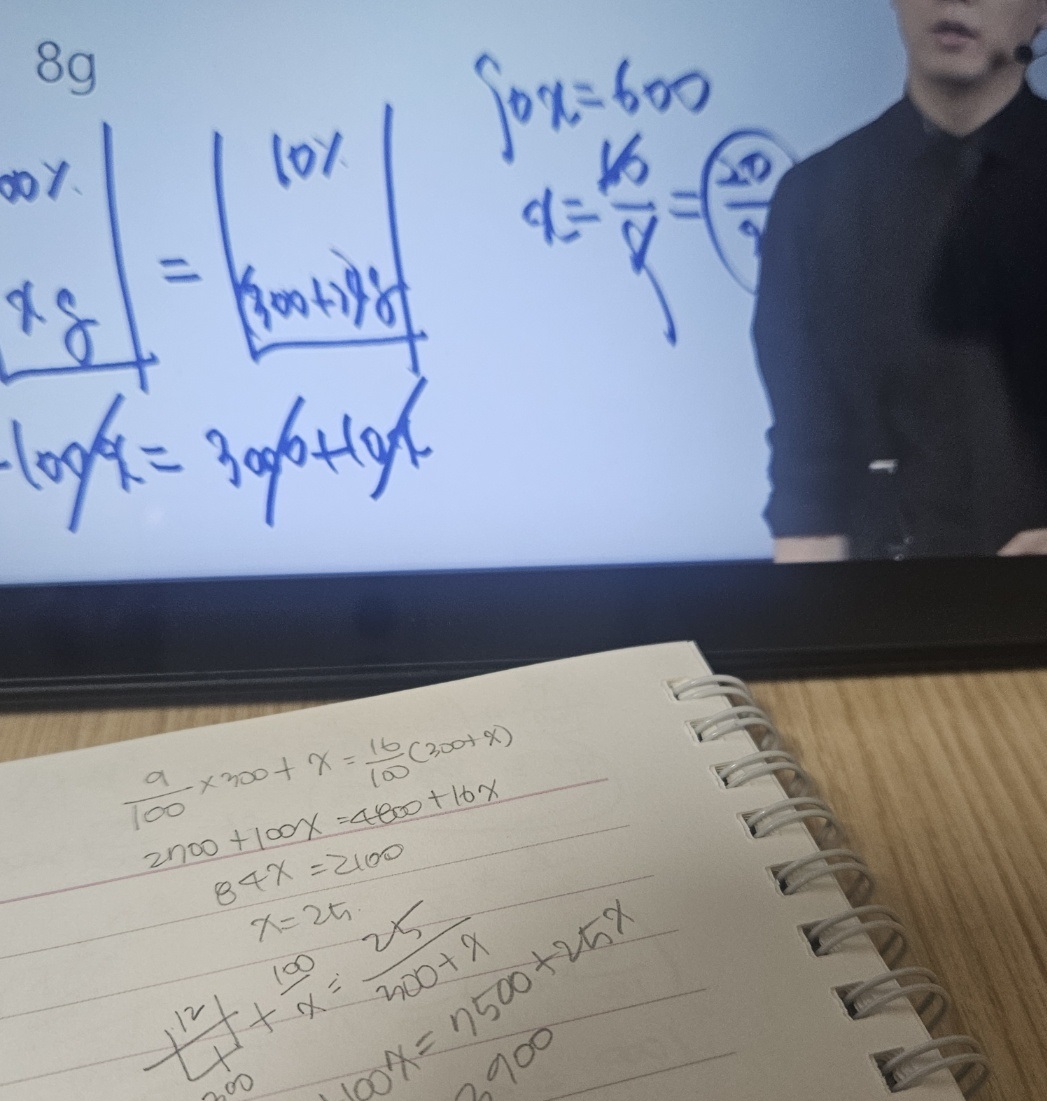 8g
00%
xg
=
10%
(300+x)g
-100x = 3000+10x
90x=600
x=
9/100 ×300+x=16/100(300+x)
2700+100x=4800+16x
84x=2100
x=25
12 + 100/x = 25/300+x
300
100x=7500+25x
3900